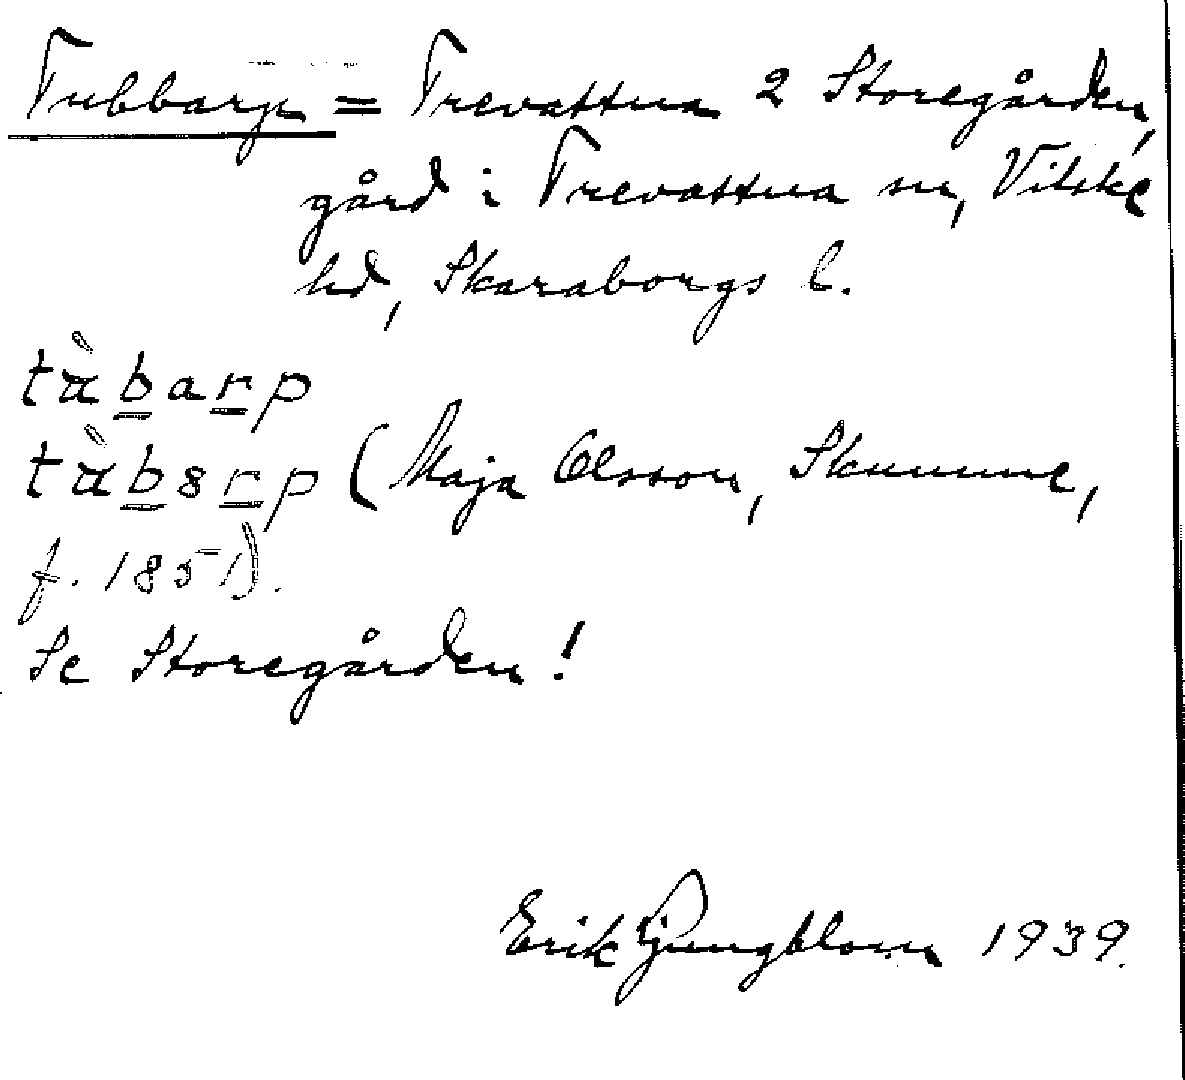 Tubbarp = Trevattna 2 Storegården,
gård i Trevattna sn, Vilske
hd, Skaraborgs l.
tàbarp
tàbərp (Maja Olsson, Skumme,
f. 1851).
Se Storegården!
Erik Ljungblom 1939.